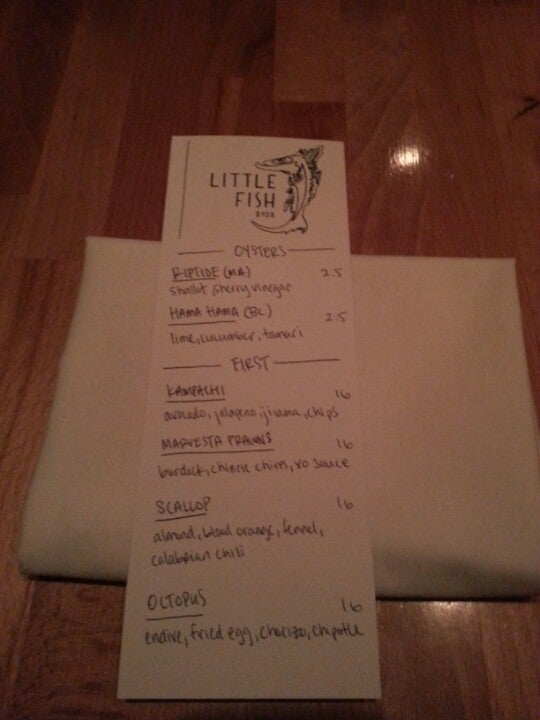 LITTLE
FISH
BYOB
OYSTERS
RIPTIDE (MA) 2.5
Shallot, sherry vinegar
HAMA HAMA (BC) 2.5
lime, cucumber, tamari
FIRST
KAMPACHI 16
avocado, jalapeno, jicama, chips
MARVESTA PRAWNS 16
burdock, chinese chives, xo sauce
SCALLOP 16
almond, blood orange, fennel,
calabrian chili
OCTOPUS 16
endive, fried egg, chorizo, chipotle